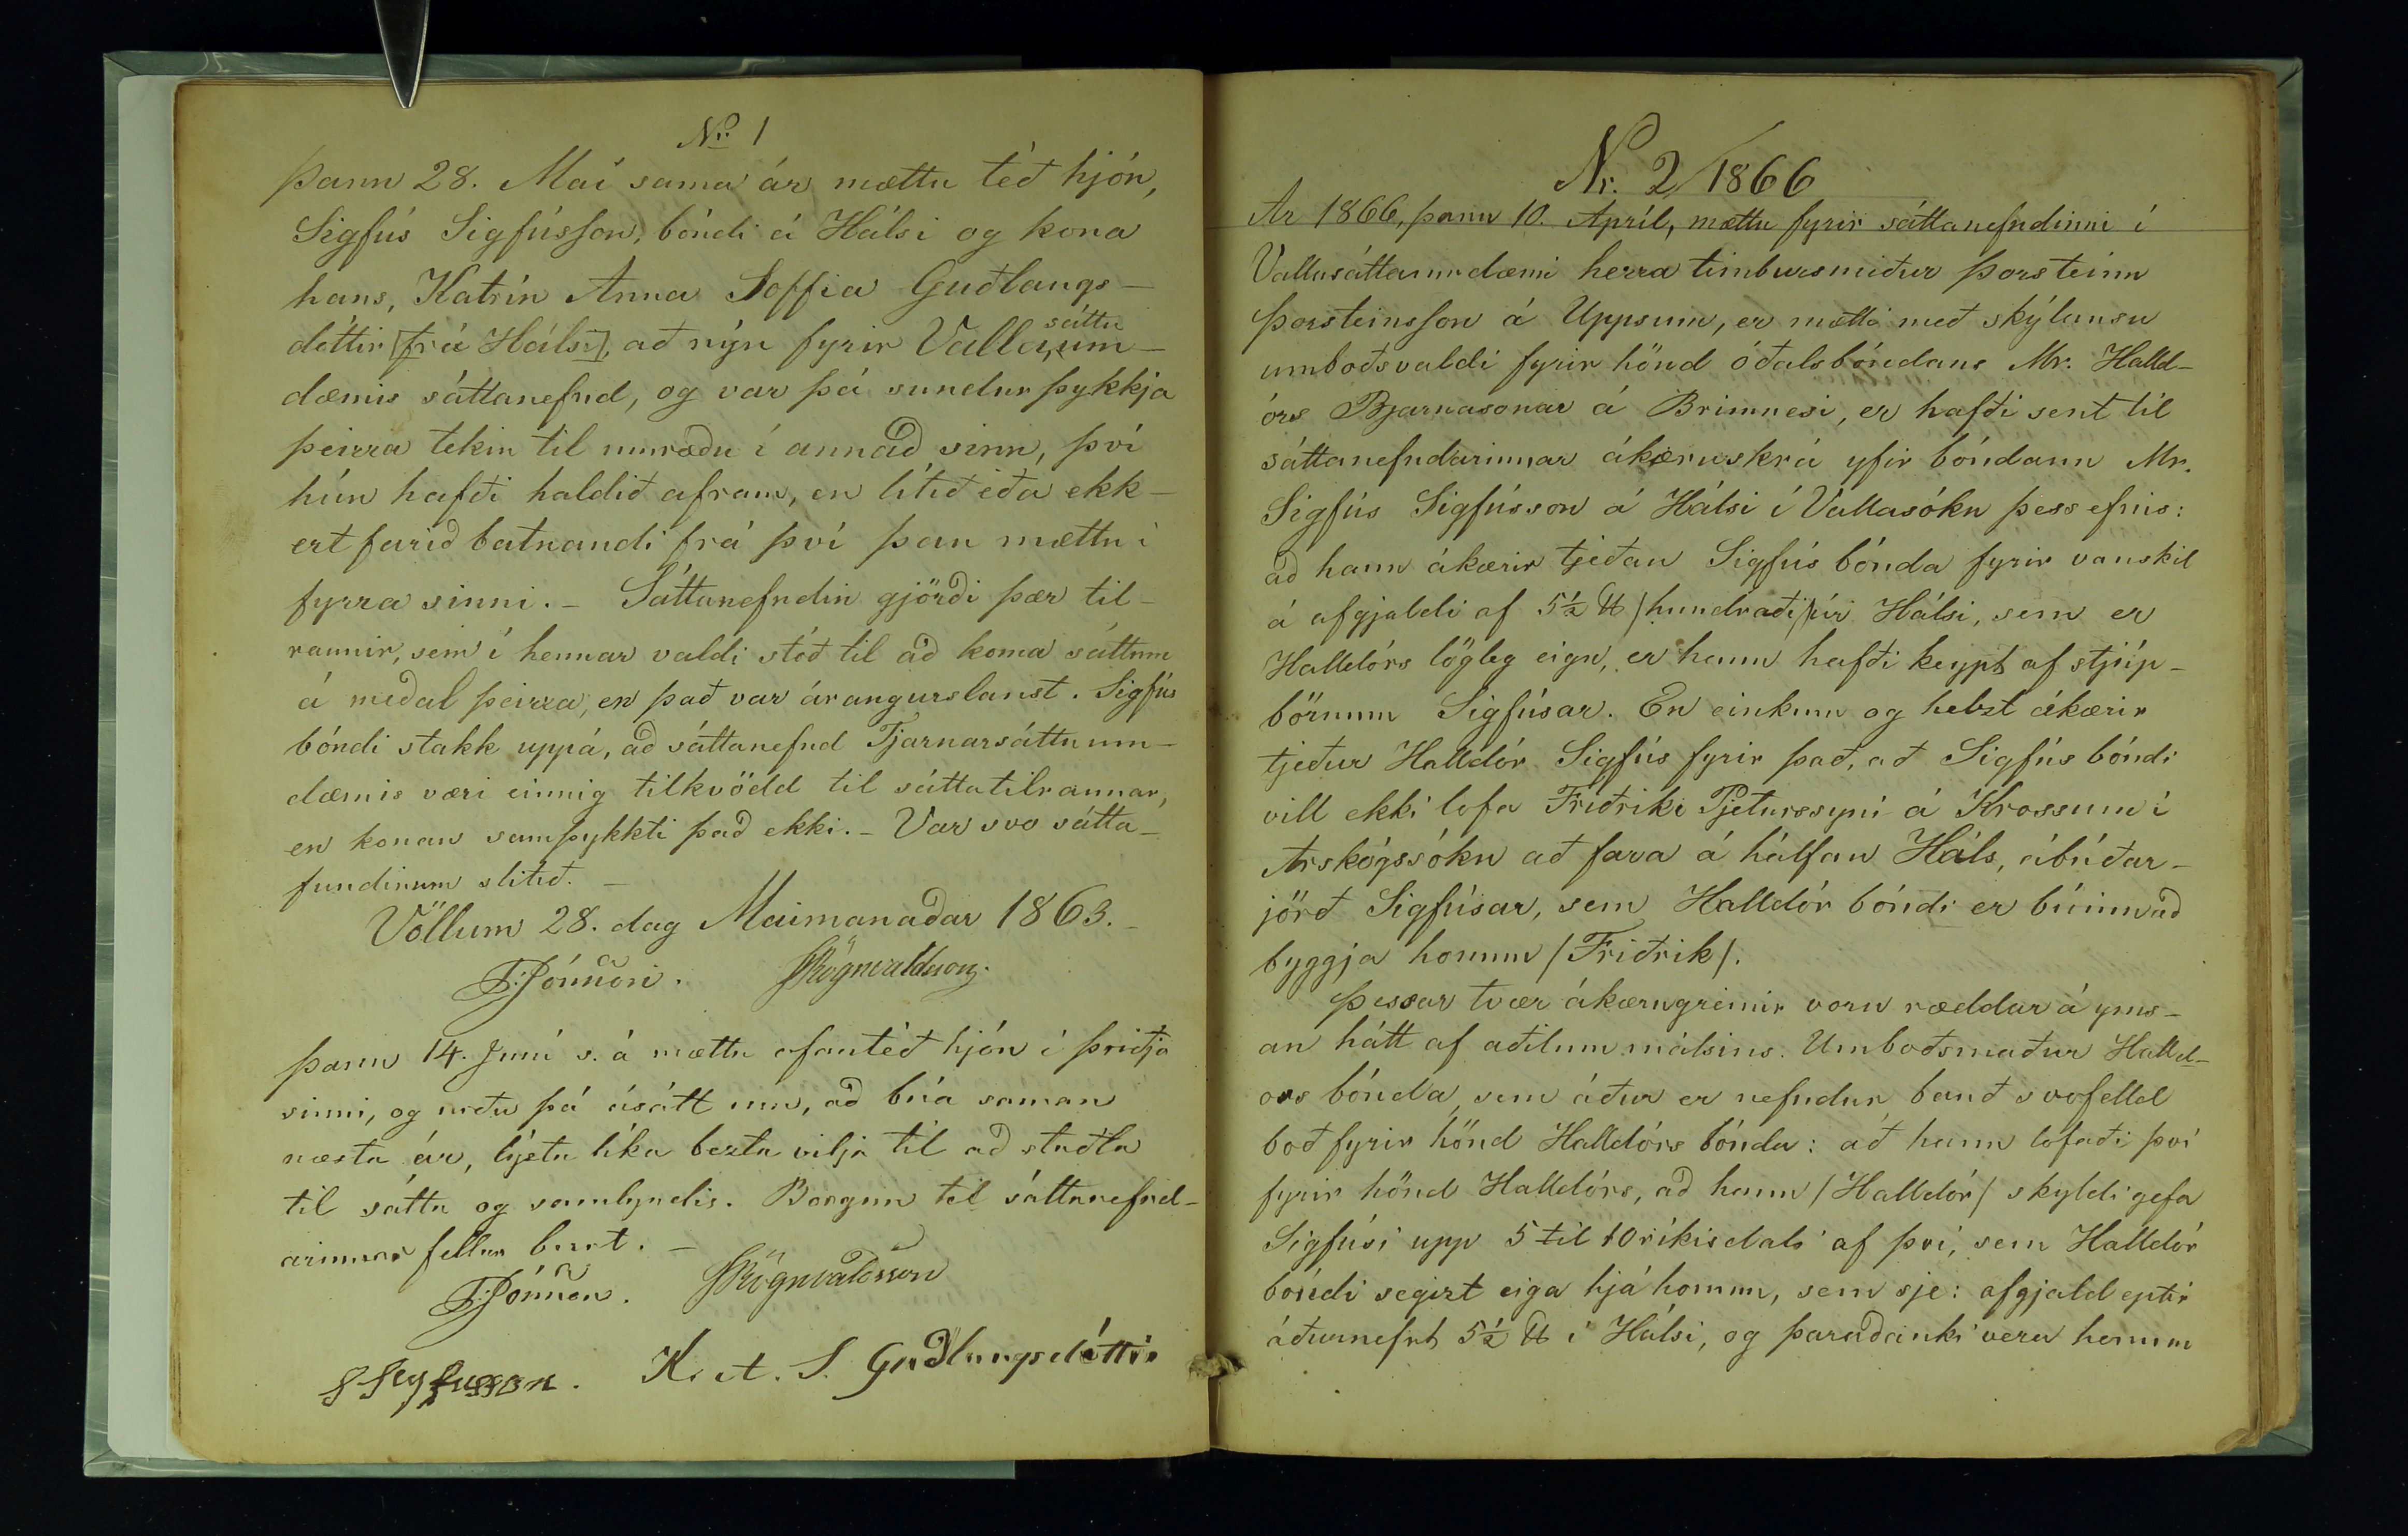 Nr. 1
Þann 28. Maí sama ár mættu téð hjón,
Sigfús Sigfússon, bóndi á Hálsi og kona
hans, Katrín Anna Soffia Guðlaugs-
dóttir [frá Hálsi], að nýu fyrir Valla sáttaum-
dæmis sáttanefnd, og var þá sundurþykkja
þeirra tekin til umræðu í annað sinn, því
hún hafði haldið afram, en lítið eða ekk-
ert farið batnandi frá því þau mættu í
fyrra sinni. - Sáttanefndin gjörði þær til-
raunir, sem í hennar valdi stóð til að koma sáttum
á meðal þeirra, en það var árangurslaust. Sigfús
bóndi stakk uppá, að sáttanefnd Tjarnarsáttaum-
dæmis væri einnig tilkvödd til sáttatilraunar,
en konan samþykkti það ekki. - Var svo sátta-
fundinum slitið. -
Völlum 28. dag Maimanaðar 1863. -
Þ. Jónsson. JRögnvaldsson.
Þann 14. Juní s. á mættu ofantéð hjón í þriðja
sinni, og urðu þá ásátt um, að búa saman
næsta ár, ljetu líka bezta vilja til að stuðla
til sátta og samlyndis. Borgun til sáttanefnd-
arinnar fellur burt. -
Þ. Jónsson. JRögnvaldsson
S Sigfusson. K. A. S. Guðlaugsdóttir
Nr. 2/1866
Ar 1866, þann 10. Apríl, mættu fyrir sáttanefndinni í
Vallasáttaumdæmi herra timbursmiður Þorsteinn
Þorsteinsson á Uppsum, er mætti með skýlausu
umboðsvaldi fyrir hönd óðalsbóndans Mr. Halld-
órs Bjarnasonar á Brimnesi, er hafði sent til
sáttanefndarinnar ákæruskrá yfir bóndann Mr.
Sigfús Sigfússon á Hálsi í Vallasókn þess efnis:
að hann ákærir tjeðan Sigfús bónda fyrir vanskil
á afgjaldi af 5½ # /hundraði/ úr Hálsi, sem er
Halldórs lögleg eign, er hann hafði keypt af stjúp-
börnum Sigfúsar. En einkum og helzt ákærir
tjeður Halldór Sigfús fyrir það, að Sigfús bóndi
vill ekki lofa Friðriki Pjeturssyni á Krossum í
Arskógssókn að fara á hálfan Háls, ábúðar-
jörð Sigfúsar, sem Halldór bóndi er búinn að
byggja honum /Friðrik/.
Þessar tvær ákærugreinir voru ræddar á yms-
an hátt af aðilum málsins. Umboðsmaður Halld-
ors bónda, sem áður er nefndur bauð svofelld
boð fyrir hönd Halldórs bónda: að hann lofaði því
fyrir hönd Halldórs, að hann /Halldór/ skyldi gefa
Sigfúsi upp 5 til 10 ríkisdali af því, sem Halldór
bóndi segist eiga hjá honum, sem sje: afgjald eptir
áðurnefnt 5½ # í Hálsi, og þaraðauki vera honum